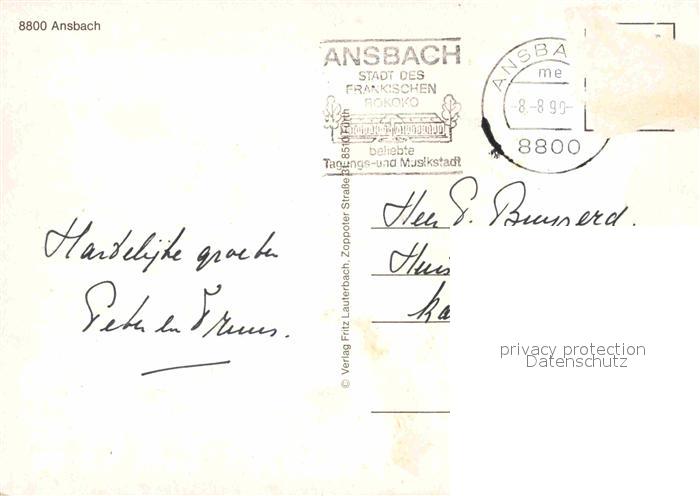 8800 Ansbach
ANSBACH
STADT DES
FRÄNKISCHEN
ROKOKO
beliebte
Tagungs-und Musikstadt
ANSBA
me
-8.-8.90-
8800
Hartelijke groeten
Peter en Truus.
© Verlag Fritz Lauterbach, Zoppoter Straße 31, 8510 Fürth
Heer P.
Huis
ka
privacy protection
Datenschutz